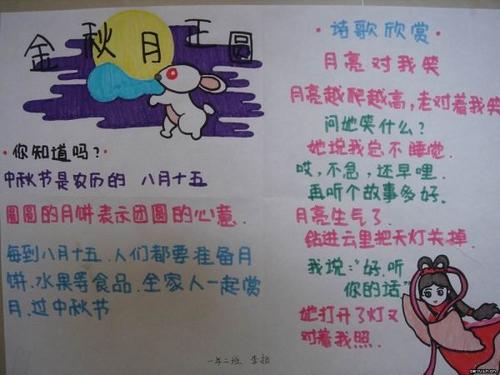 金秋月正圆
·你知道吗?·
中秋节是农历的 八月十五
圆圆的月饼表示团圆的心意.
每到八月十五.人们都要准备月
饼.水果等食品.全家人一起赏
月.过中秋节
一年二班
·诗歌欣赏·
月亮对我笑
月亮越爬越高,老对着我笑
问她笑什么?
她说我总不睡觉.
哎,不急,还早哩.
再听个故事多好.
月亮生气了.
钻进云里把天灯关掉.
我说:"好.听
你的话"
她打开了灯又
对着我照.